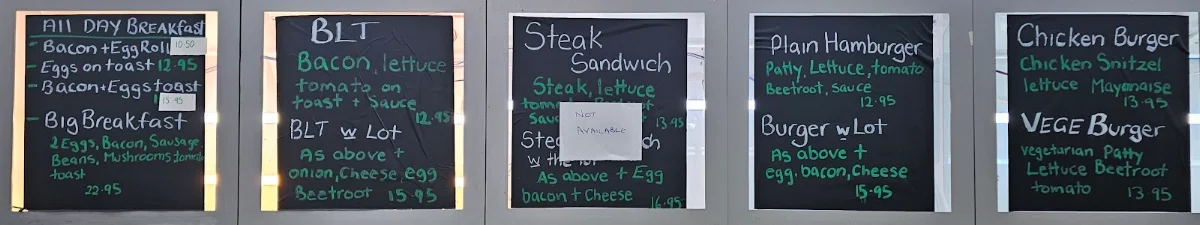 All DAY BREAKfast
- Bacon + Egg Roll 10.50
- Eggs on toast 12.95
- Bacon + Eggs toast
15.95
- Big Breakfast
2 Eggs, Bacon, Sausage
Beans, Mushrooms tomato
toast
22.95
BLT
Bacon, lettuce
tomato on
toast + Sauce
12.95
BLT w Lot
As above +
onion, Cheese, egg
Beetroot 15.95
Steak
Sandwich
Steak, lettuce
NOT
AVAILABLE
13.95
w the lot
As above + Egg
bacon + Cheese
16.95
Plain Hamburger
Patty, Lettuce, tomato
Beetroot, sauce
12.95
Burger w Lot
As above +
egg, bacon, Cheese
15.95
Chicken Burger
Chicken Snitzel
lettuce Mayonaise
13.95
VEGE Burger
vegetarian Patty
Lettuce Beetroot
tomato 13.95